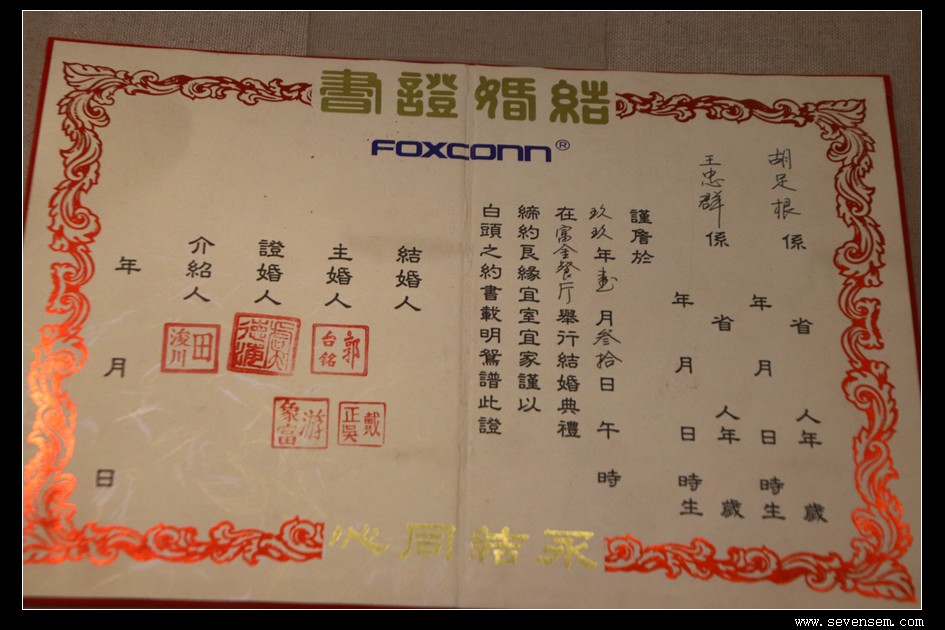 結婚證書
FOXCONN®
胡足根係 省 人年 歲
年 月 日 時生
王忠群係 省 人年 歲
年 月 日 時生
謹詹於
玖玖年壹月叁拾日 午 時
在富金餐厅舉行結婚典禮
締約良緣宜室宜家謹以
白頭之約書載明鴛譜此證
結婚人
主婚人
郭台銘
戴正吳
證婚人
游象富
介紹人
田浚川
年 月 日
永結同心
www.sevensem.com